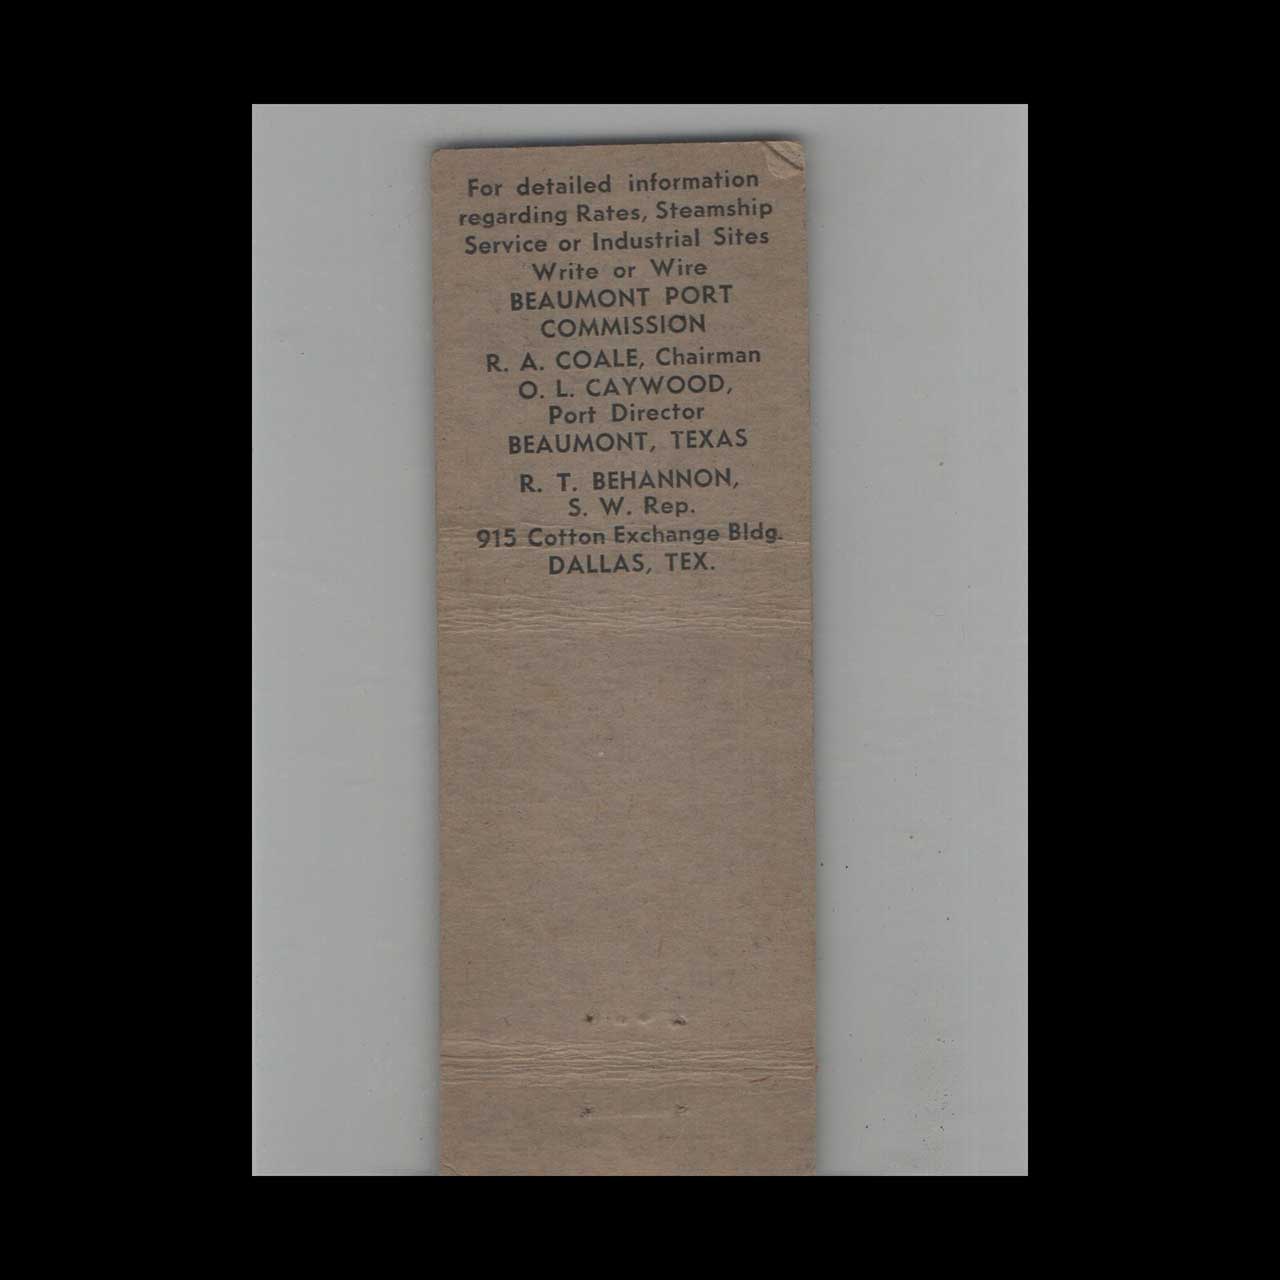 For detailed information
regarding Rates, Steamship
Service or Industrial Sites
Write or Wire
BEAUMONT PORT
COMMISSION
R. A. COALE, Chairman
O. L. CAYWOOD,
Port Director
BEAUMONT, TEXAS
R. T. BEHANNON,
S. W. Rep.
915 Cotton Exchange Bldg.
DALLAS, TEX.